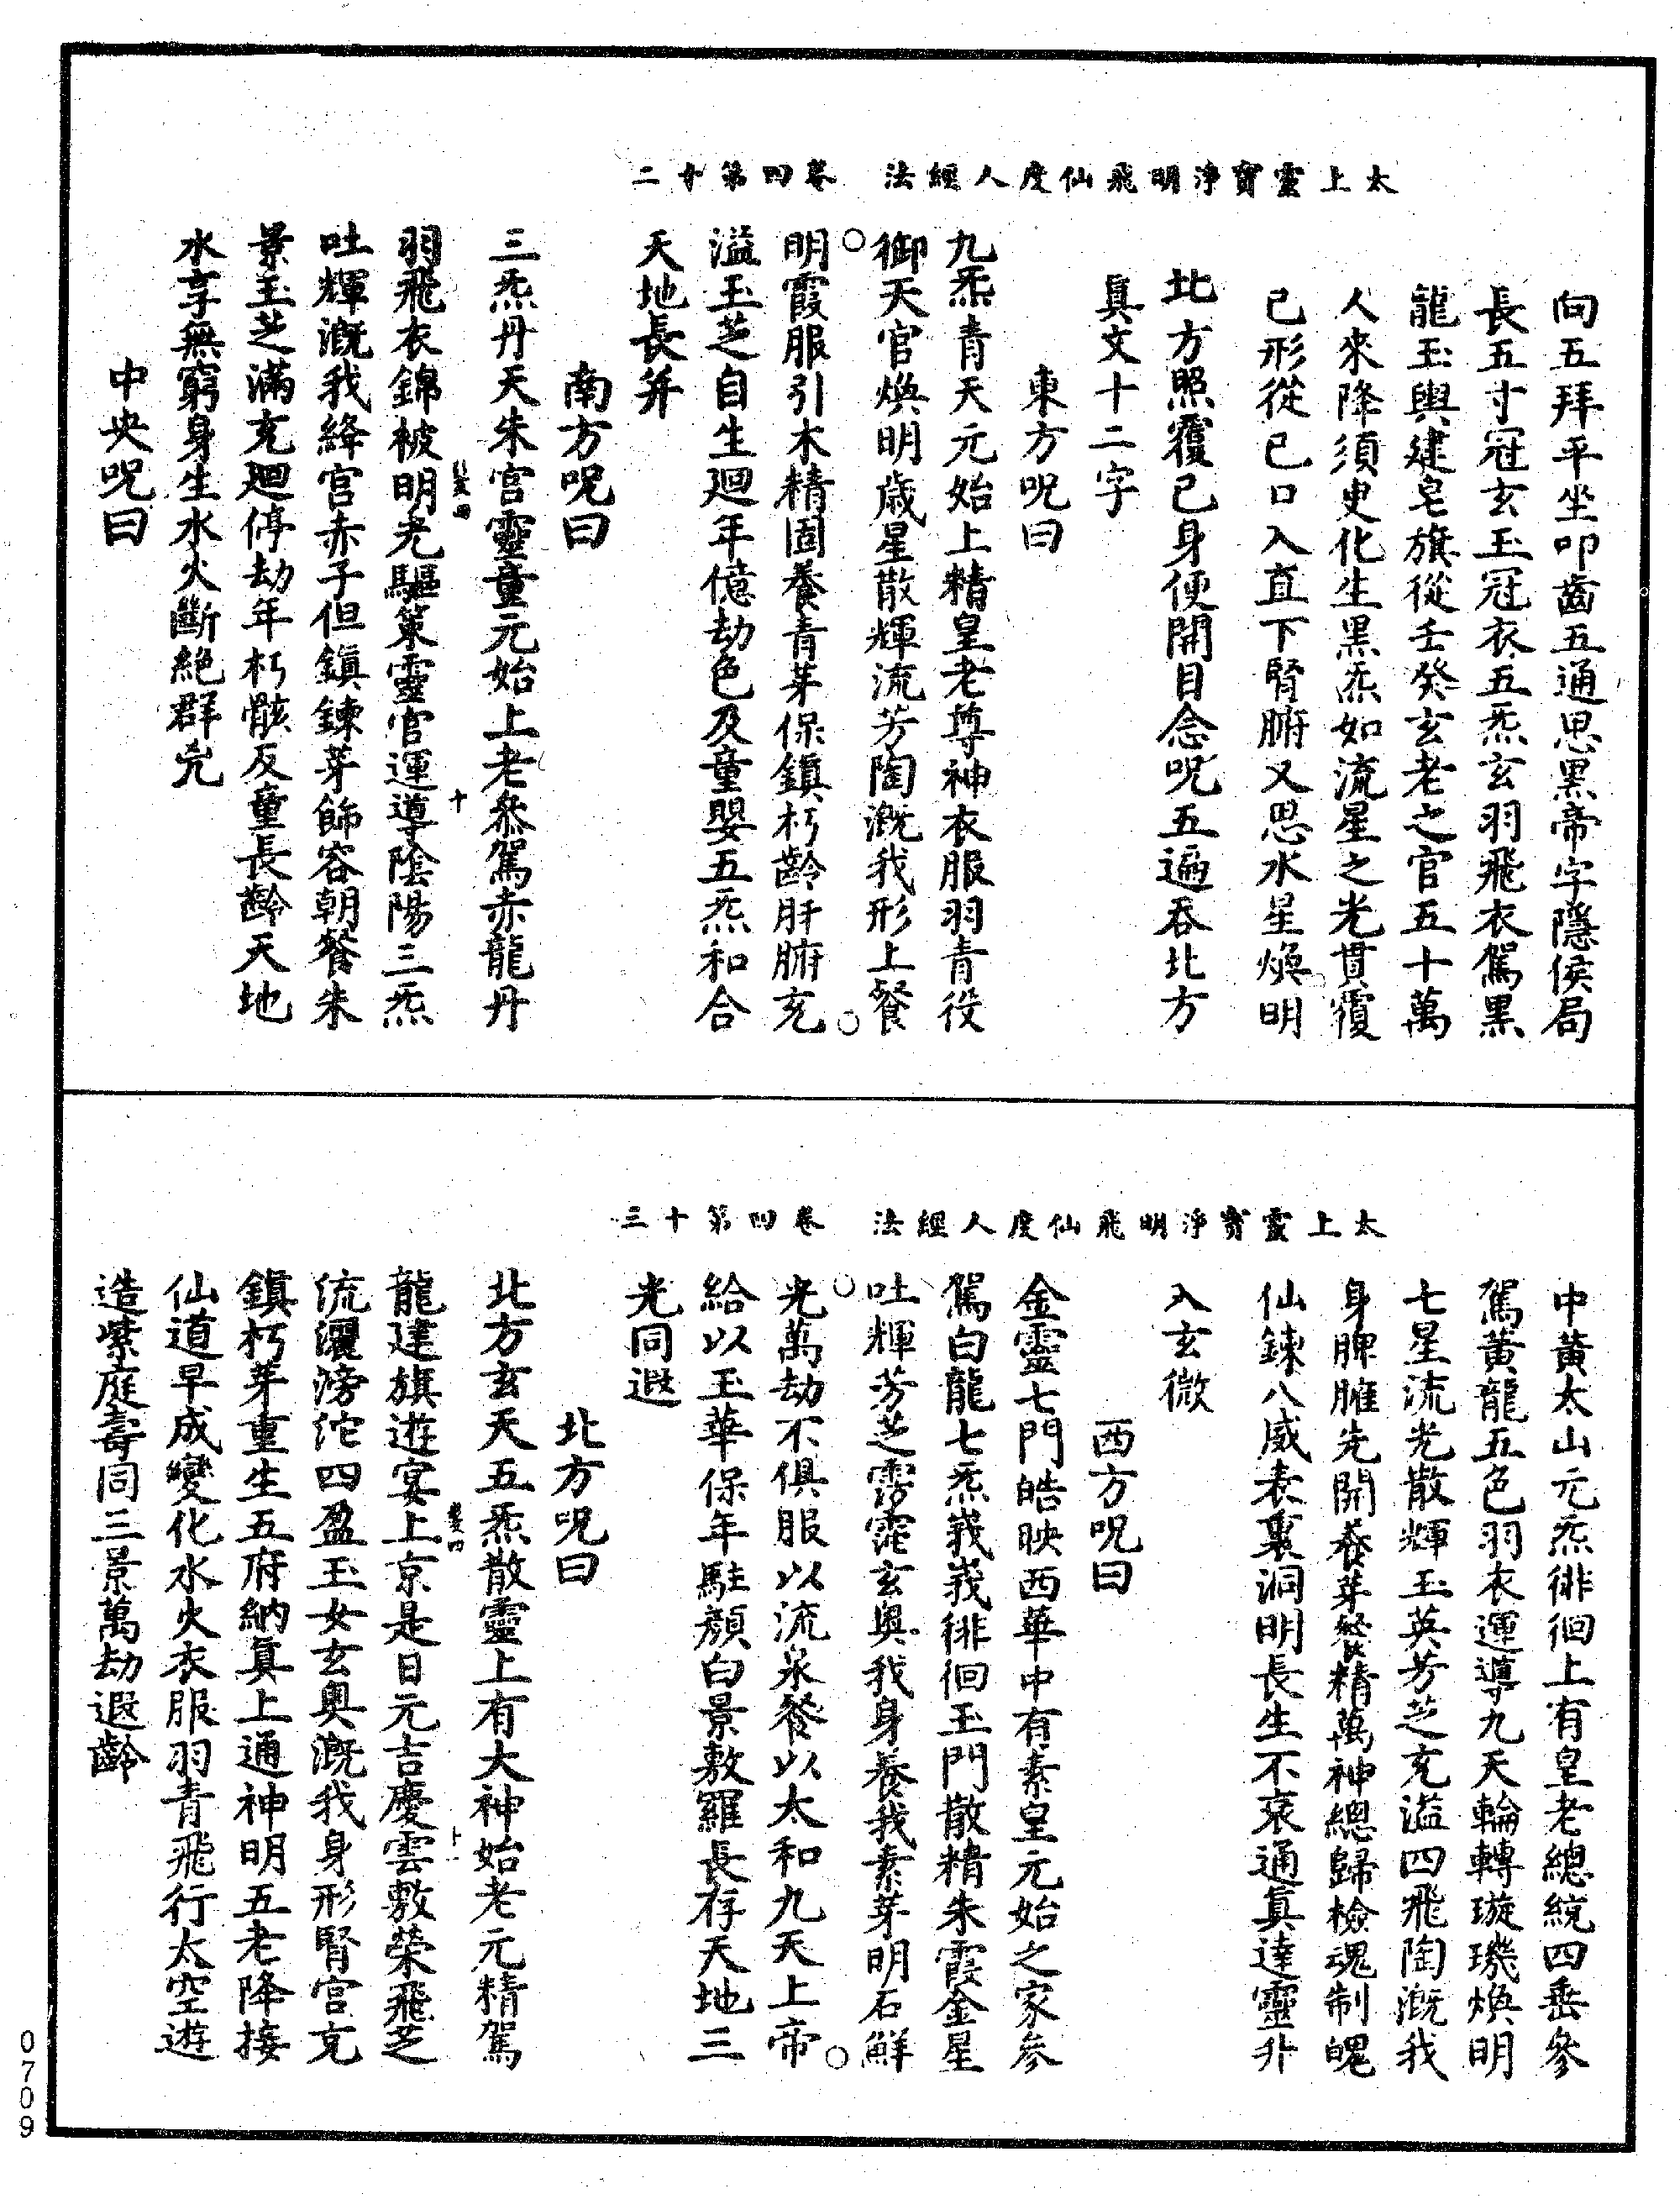 太上靈寶淨明飛仙度人經法　卷四第十二
向五拜平坐叩齒五通思黑帝字隱侯局
長五寸冠玄玉冠衣五炁玄羽飛衣駕黑
龍玉輿建皂旗從壬癸玄老之官五十萬
人來降須臾化生黑炁如流星之光貫覆
己形從己口入直下腎腑又思水星煥明
北方照覆己身便開目念呪五遍吞北方
真文十二字
東方呪曰
九炁青天元始上精皇老尊神衣服羽青役
御天官煥明歲星散輝流芳陶溉我形上餐
明霞服引木精固養青芽保鎮朽齡肝腑充
溢玉芝自生廻年億劫色及童嬰五炁和合
天地長并
南方呪曰
三炁丹天朱宮靈童元始上老叅駕赤龍丹
羽飛衣錦被明光驅策靈官運導陰陽三炁
吐輝溉我絳宮赤子但鎮鍊芽飾容朝餐朱
景玉芝滿充廻停劫年朽骸反童長齡天地
水享無窮身生水火斷絕群兇
中央呪曰
太上靈寶淨明飛仙度人經法　卷四第十三
中黃太山元炁徘徊上有皇老總統四垂參
駕黃龍五色羽衣運導九天輪轉璇璣煥明
七星流光散輝玉英芳芝充溢四飛陶溉我
身脾臃先開養芽餐精萬神總歸檢魂制魄
仙鍊八威表裏洞明長生不衰通真達靈升
入玄微
西方呪曰
金靈七門皓映西華中有素皇元始之家參
駕白龍七炁峩峩徘徊玉門散精朱霞金星
吐輝芳芝霶霈玄輿我身養我素芽明石鮮
光萬劫不俱服以流泉餐以太和九天上帝
給以玉華保年駐顏白景敷羅長存天地三
光同遐
北方呪曰
北方玄天五炁散靈上有大神始老元精駕
龍建旗遊宴上京是日元吉慶雲敷榮飛芝
流灑滂沱四盈玉女玄輿溉我身形腎宮充
鎮朽芽重生五府納真上通神明五老降接
仙道早成變化水火衣服羽青飛行太空遊
造紫庭壽同三景萬劫遐齡
0709